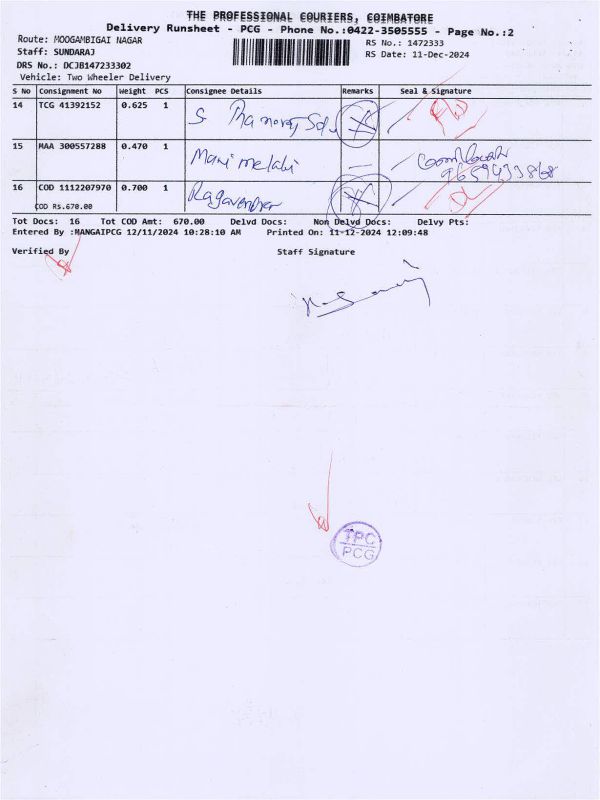 THE PROFESSIONAL COURIERS, COIMBATORE
Delivery Runsheet - PCG - Phone No.:0422-3505555 - Page No.:2
Route: MOOGAMBIGAI NAGAR RS No.: 1472333
Staff: SUNDARAJ RS Date: 11-Dec-2024
DRS No.: DCJB147233302
Vehicle: Two Wheeler Delivery
S No Consignment No Weight PCS Consignee Details Remarks Seal & Signature
14 TCG 41392152 0.625 1 S
15 MAA 300557288 0.470 1 Mani
9659433868
16 COD 1112207970 0.700 1 Ragavendher
COD Rs.670.00
Tot Docs: 16 Tot COD Amt: 670.00 Delvd Docs: Non Delvd Docs: Delvy Pts:
Entered By :MANGAIPCG 12/11/2024 10:28:10 AM Printed On: 11-12-2024 12:09:48
Verified By Staff Signature
TPC
PCG